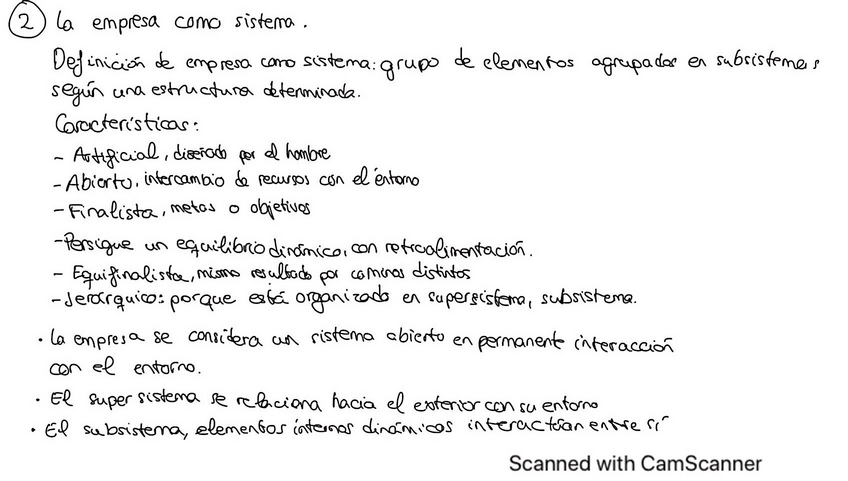 2 La empresa como sistema.
Definición de empresa como sistema: grupo de elementos agrupados en subsistemas
según una estructura determinada.
Características:
- Artificial, diseñado por el hombre
- Abierto, intercambio de recursos con el entorno
- Finalista, metas o objetivos
- Persigue un equilibrio dinámico, con retroalimentación.
- Equifinalista, mismo resultado por caminos distintos
- Jerárquico: porque está organizado en supersistema, subsistema.
· La empresa se considera un sistema abierto en permanente interacción
con el entorno.
· El super sistema se relaciona hacia el exterior con su entorno
· El subsistema, elementos internos dinámicos interactúan entre sí
Scanned with CamScanner